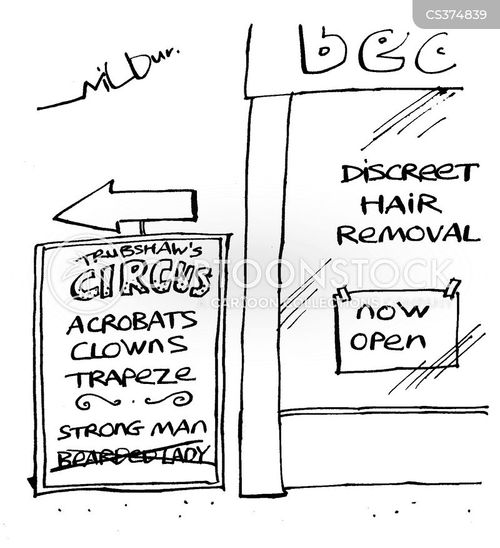 CS374839
Wilbur.
bec
DISCREET
HAIR
REMOVAL
now
open
TRUBSHAW'S
CIRCUS
ACROBATS
CLOWNS
TRAPEZE
STRONG MAN
BEARDED LADY
CARTOONSTOCK
CARTOON COLLECTIONS